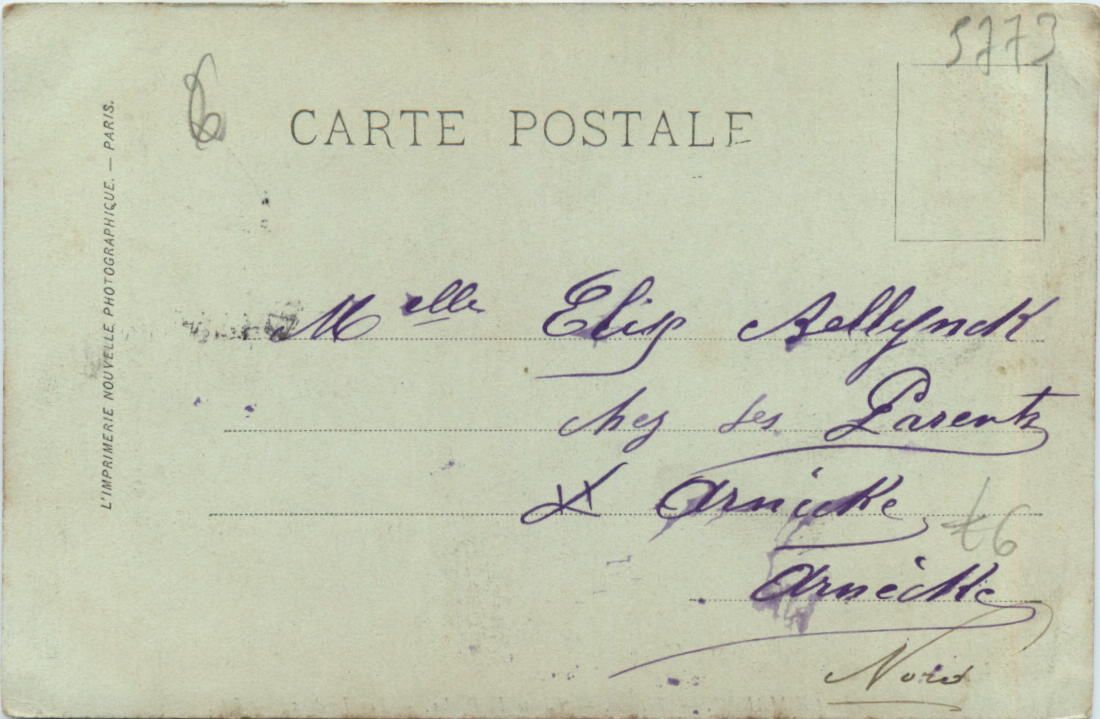 5773
CARTE POSTALE
L'IMPRIMERIE NOUVELLE PHOTOGRAPHIQUE. — PARIS.
Melle Elisa
chez ses Parents
Arnicke
Arnècke
Nord